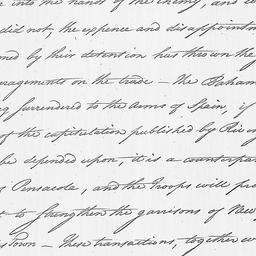 into the hands of the Enemy, and
did not, the expence and disappointm
ned by their detention has thrown the
uragements on the trade — The Baham
g surrendered to the arms of Spain, if
of the capitulation published by Riv
be depended upon, it is a counterpa
Pensacola, and the Troops will pr
to strengthen the garrisons of New
Town — These transactions, together w